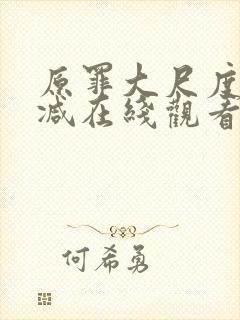 原罪大尺度
减在綫觀看
何希勇